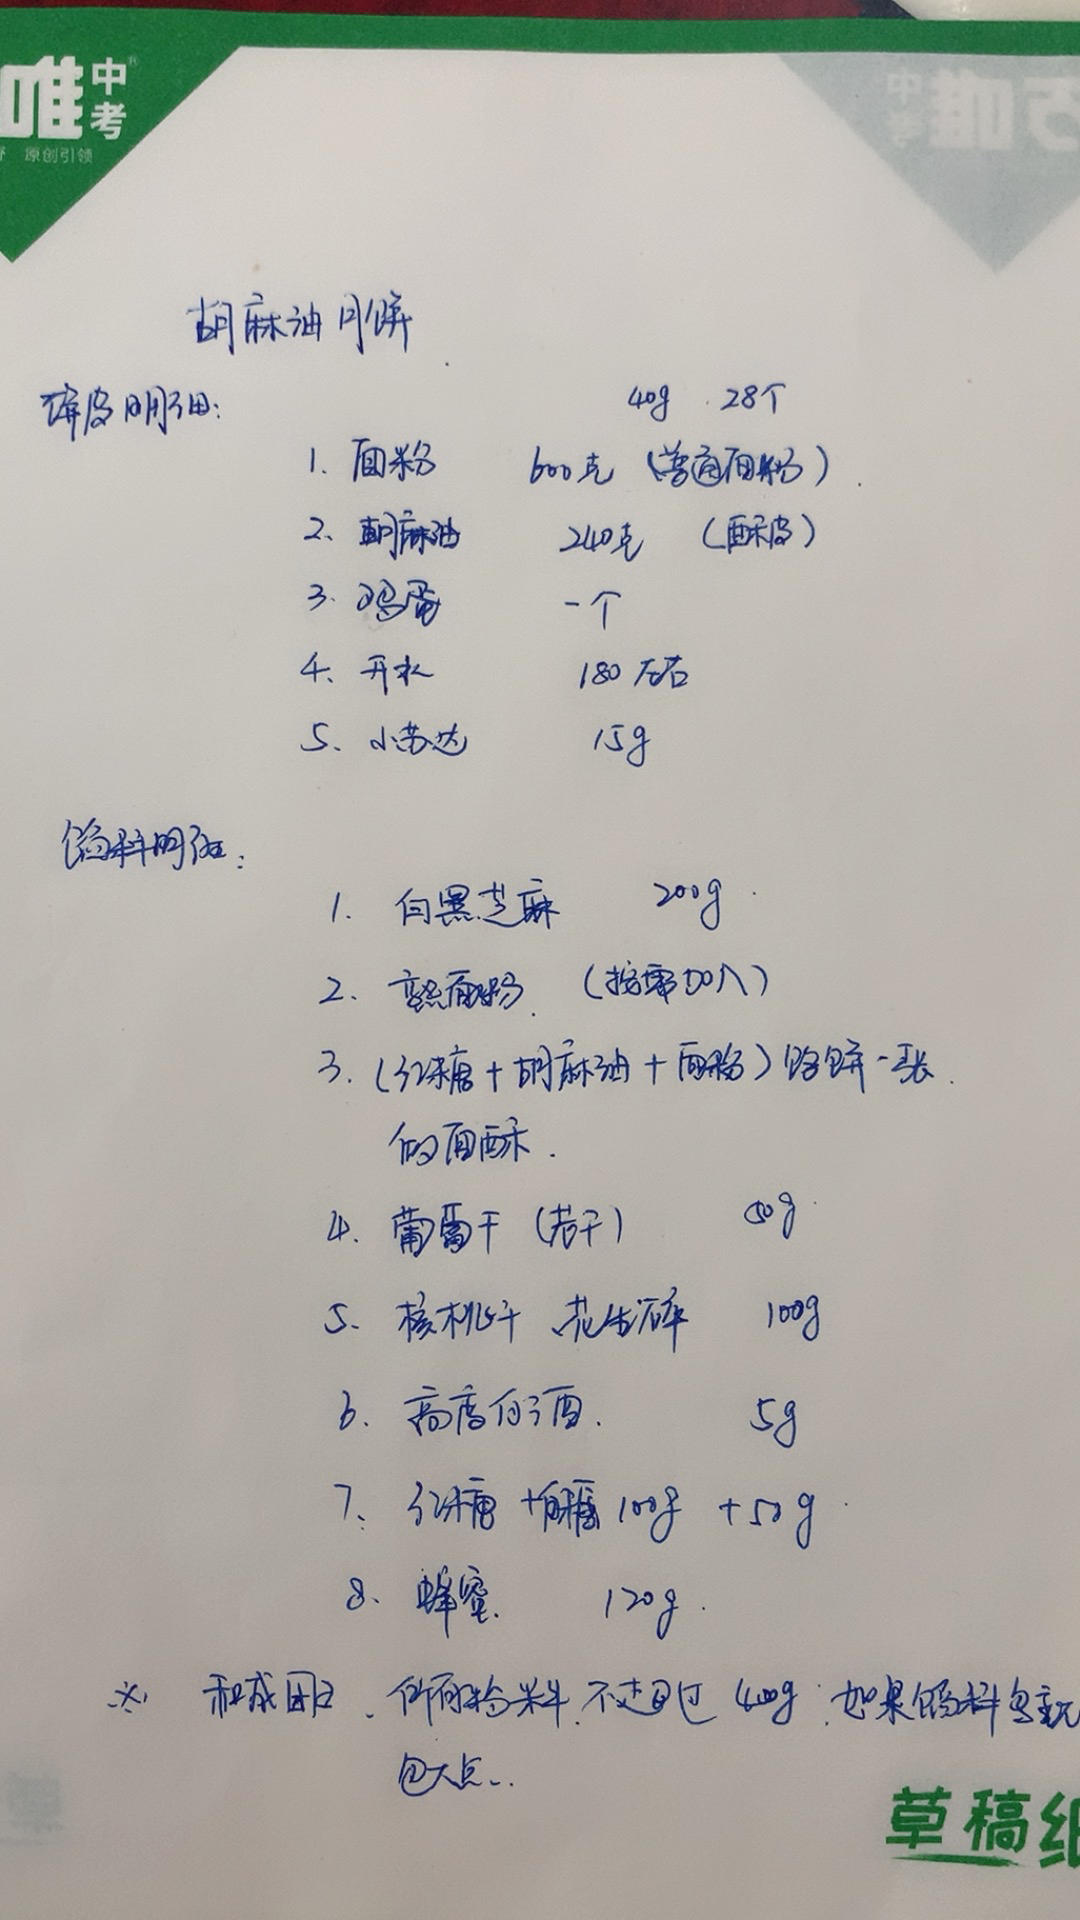 唯 中考
原创引领
胡麻油月饼
饼皮明细:
40g 28个
1. 面粉 600克 (普通面粉)
2. 胡麻油 240克 (酥皮)
3. 鸡蛋 一个
4. 开水 180左右
5. 小苏达 15g
馅料明细:
1. 白黑芝麻 200g
2. 熟面粉 (按需加入)
3. (红糖+胡麻油+面粉) 烙饼一张
的面酥.
4. 葡萄干 (若干) 50g
5. 核桃干 花生碎 100g
6. 高度白酒. 5g
7. 红糖+白糖 100g +50g
8. 蜂蜜. 120g.
※ 和成团, 所有粉料不超过400g, 如果馅料多就
包大点..
草稿纸